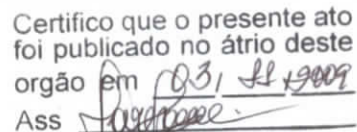 Certifico que o presente ato
foi publicado no átrio deste
orgão em 03, 11, 2009
Ass